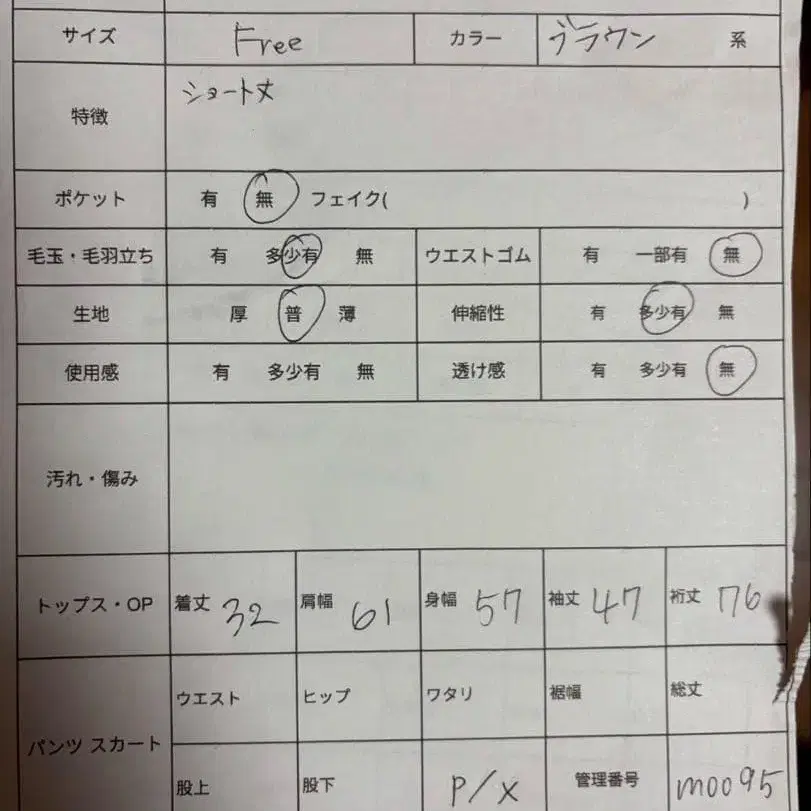 サイズ Free カラー ブラウン 系
特徴 ショート丈
ポケット 有 無 フェイク( )
毛玉・毛羽立ち 有 多少有 無 ウエストゴム 有 一部有 無
生地 厚 普 薄 伸縮性 有 多少有 無
使用感 有 多少有 無 透け感 有 多少有 無
汚れ・傷み
トップス・OP 着丈 32 肩幅 61 身幅 57 袖丈 47 裄丈 76
パンツ スカート ウエスト ヒップ ワタリ 裾幅 総丈
股上 股下 P/X 管理番号 m0095